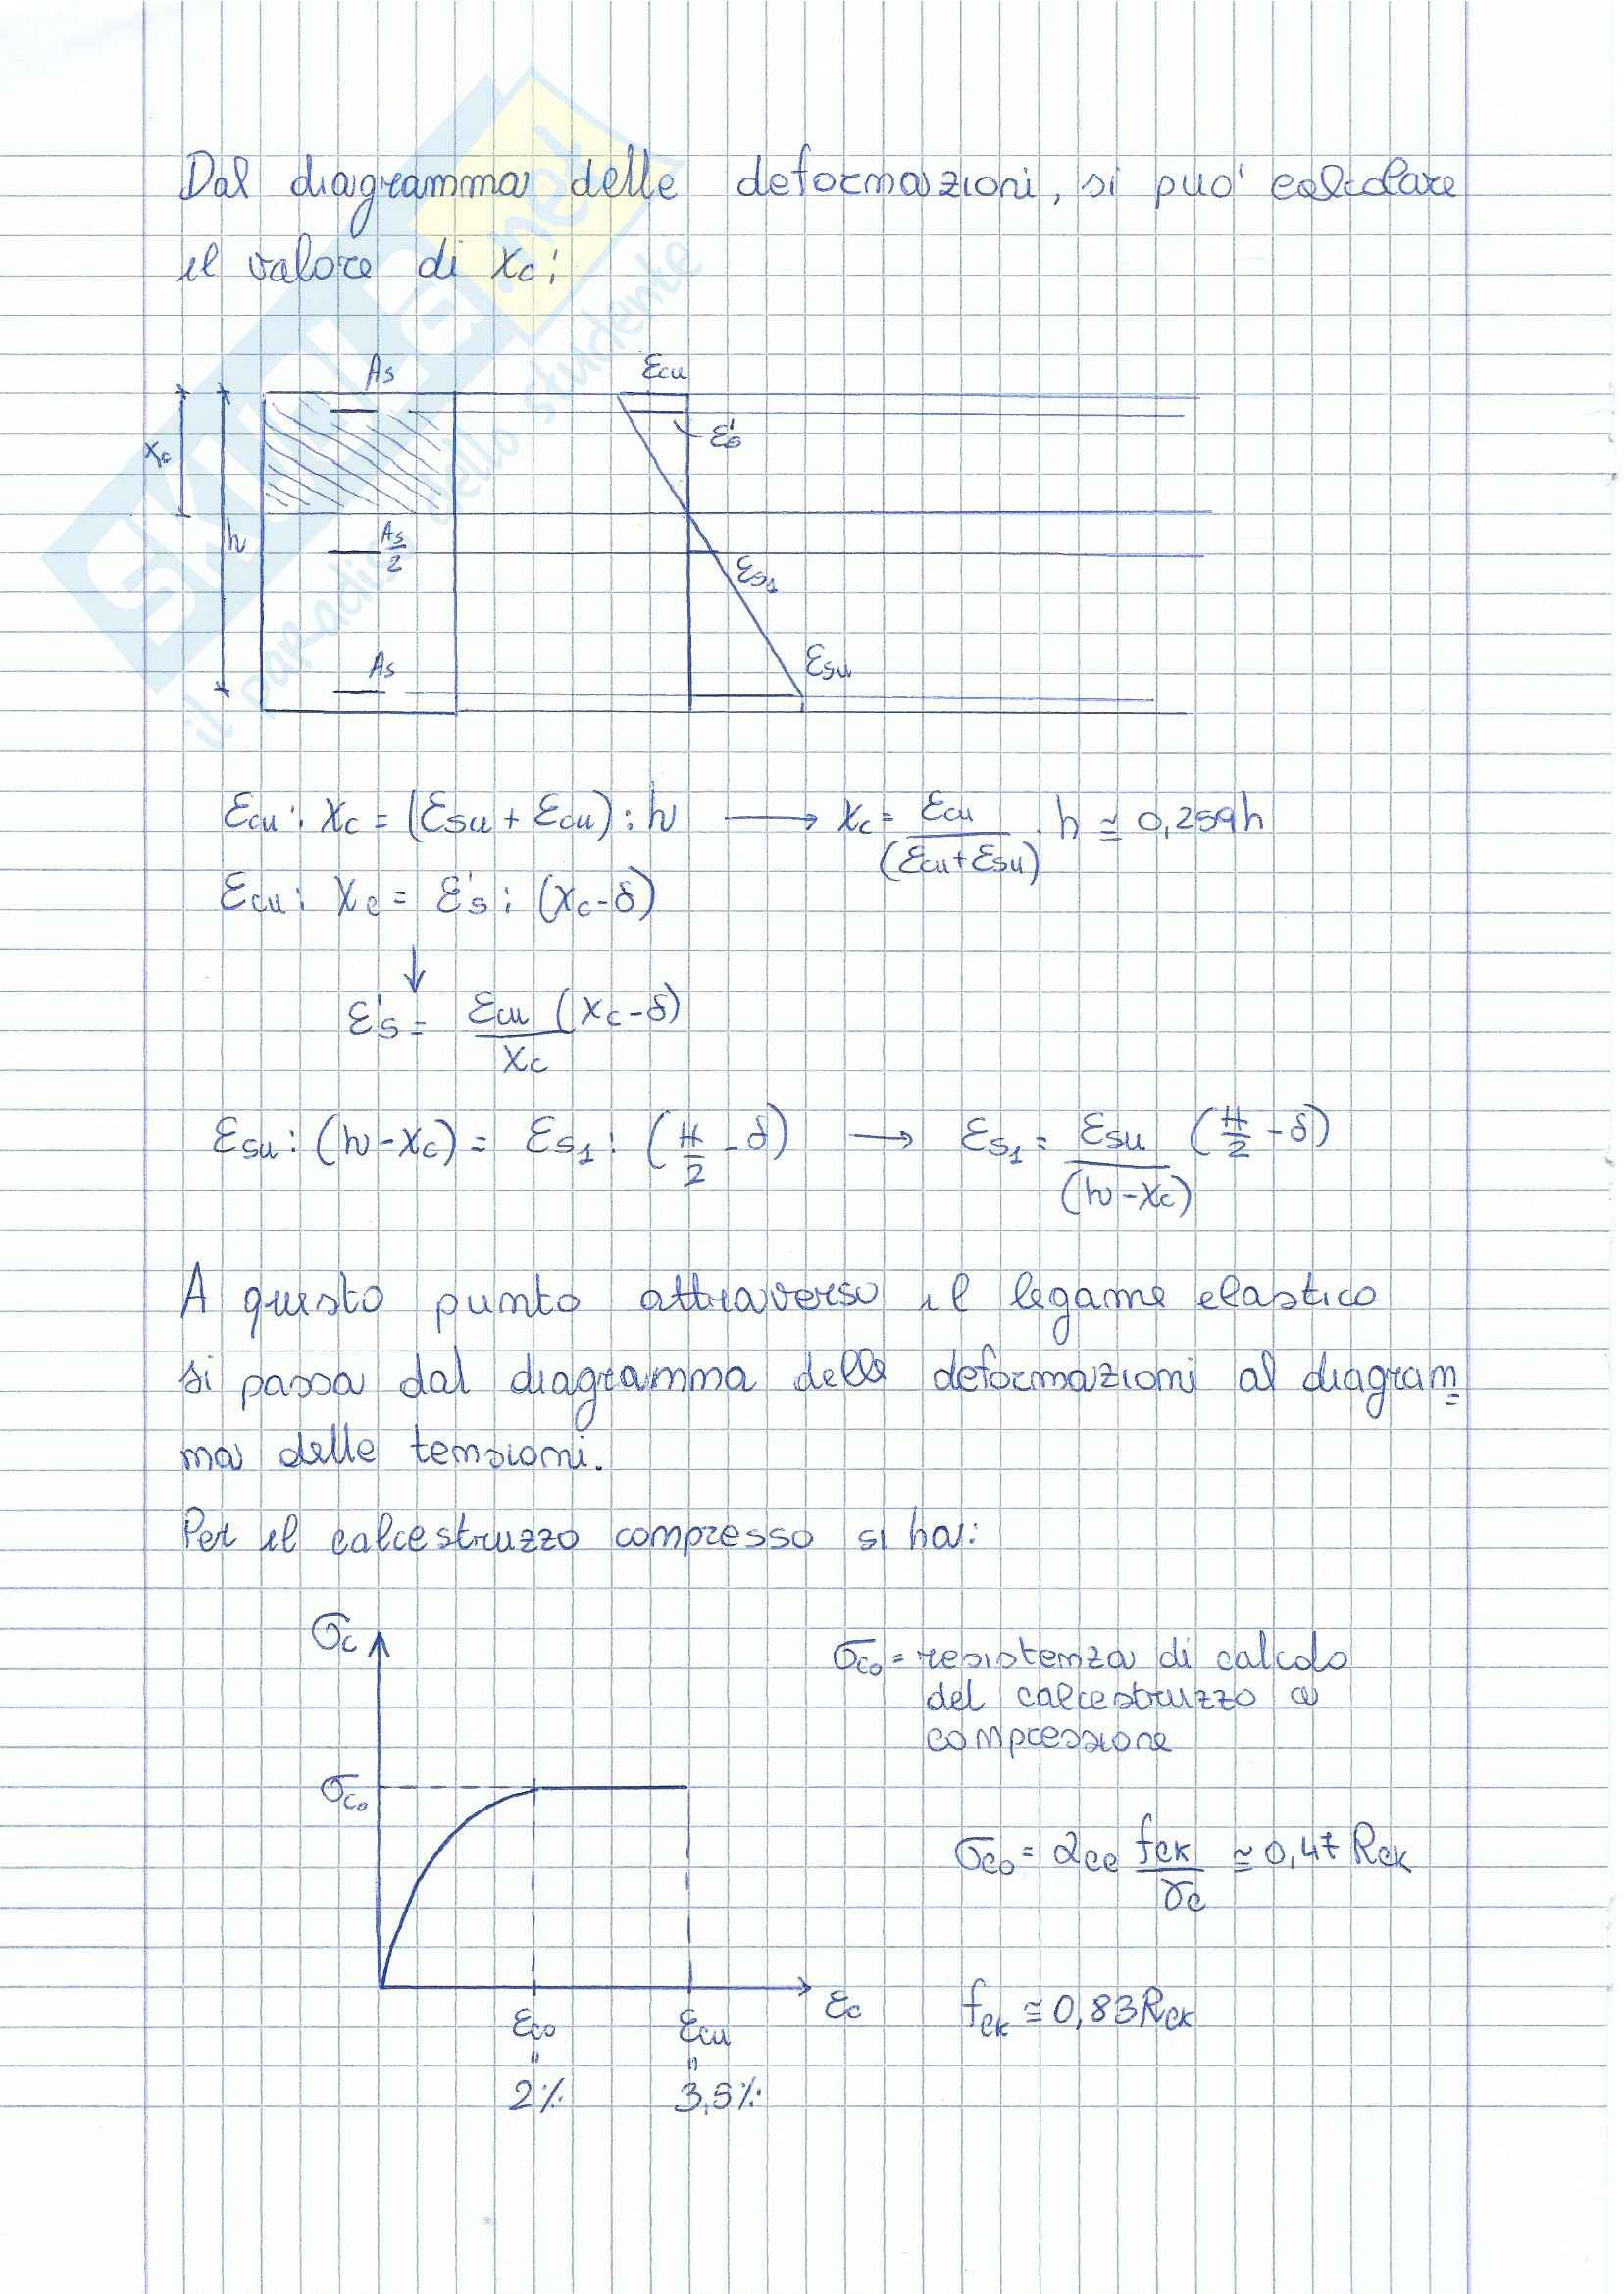 Dal diagramma delle deformazioni, si puo' calcolare
il valore di xc:
As
εcu
ε's
xc
h
As/2
εs1
As
εsu
εcu : xc = (εsu + εcu) : h → xc = εcu/(εcu+εsu) · h ≅ 0,259h
εcu : xc = ε's : (xc-δ)
↓
ε's = εcu (xc-δ)/xc
εsu : (h-xc) = εs1 : (H/2 - δ) → εs1 = εsu/(h-xc) (H/2 - δ)
A questo punto attraverso il legame elastico
si passa dal diagramma delle deformazioni al diagram=
ma delle tensioni.
Per il calcestruzzo compresso si ha:
σc
σco = resistenza di calcolo
del calcestruzzo a
compressione
σco
σco = αcc fck/γc ≅ 0,47 Rck
εc
fck ≅ 0,83Rck
εco
εcu
"
"
2%
3,5%
SKUOLA.net
il paradiso dello studente